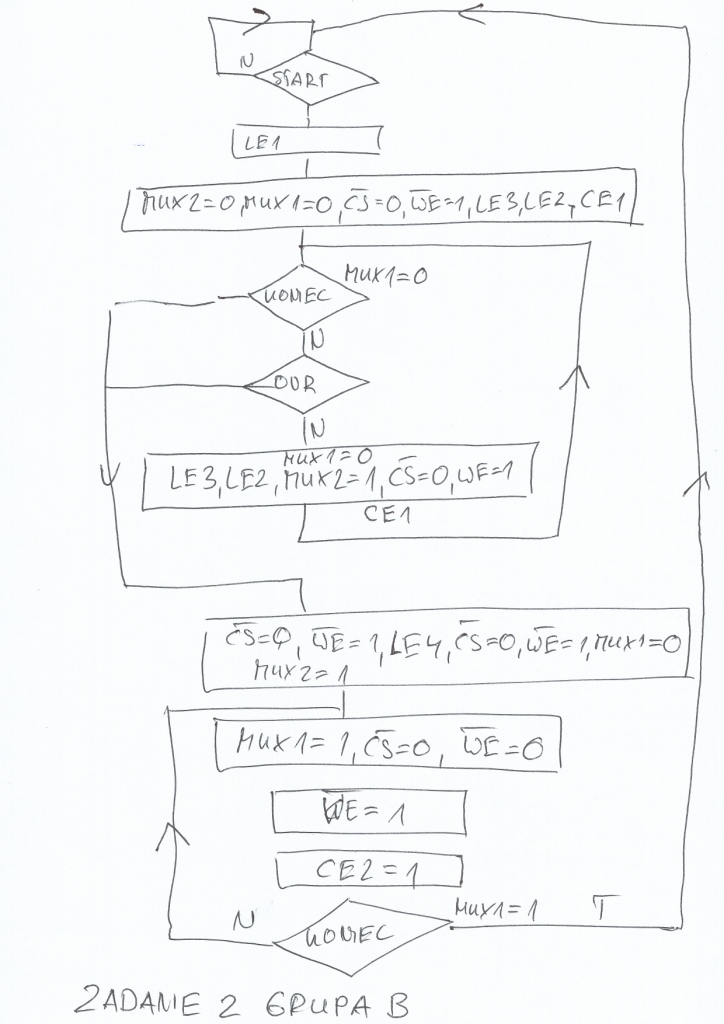 N
START
LE1
MUX2=0, MUX1=0, C̅S̅=0, W̅E̅=1, LE3, LE2, CE1
MUX1=0
KONIEC
N
OVR
N
MUX1=0
LE3, LE2, MUX2=1, C̅S̅=0, W̅E̅=1
CE1
C̅S̅=0, W̅E̅=1, LE4, C̅S̅=0, W̅E̅=1, MUX1=0
MUX2=1
MUX1=1, C̅S̅=0, W̅E̅=0
W̅E̅=1
CE2=1
N
MUX1=1 T
KONIEC
ZADANIE 2 GRUPA B